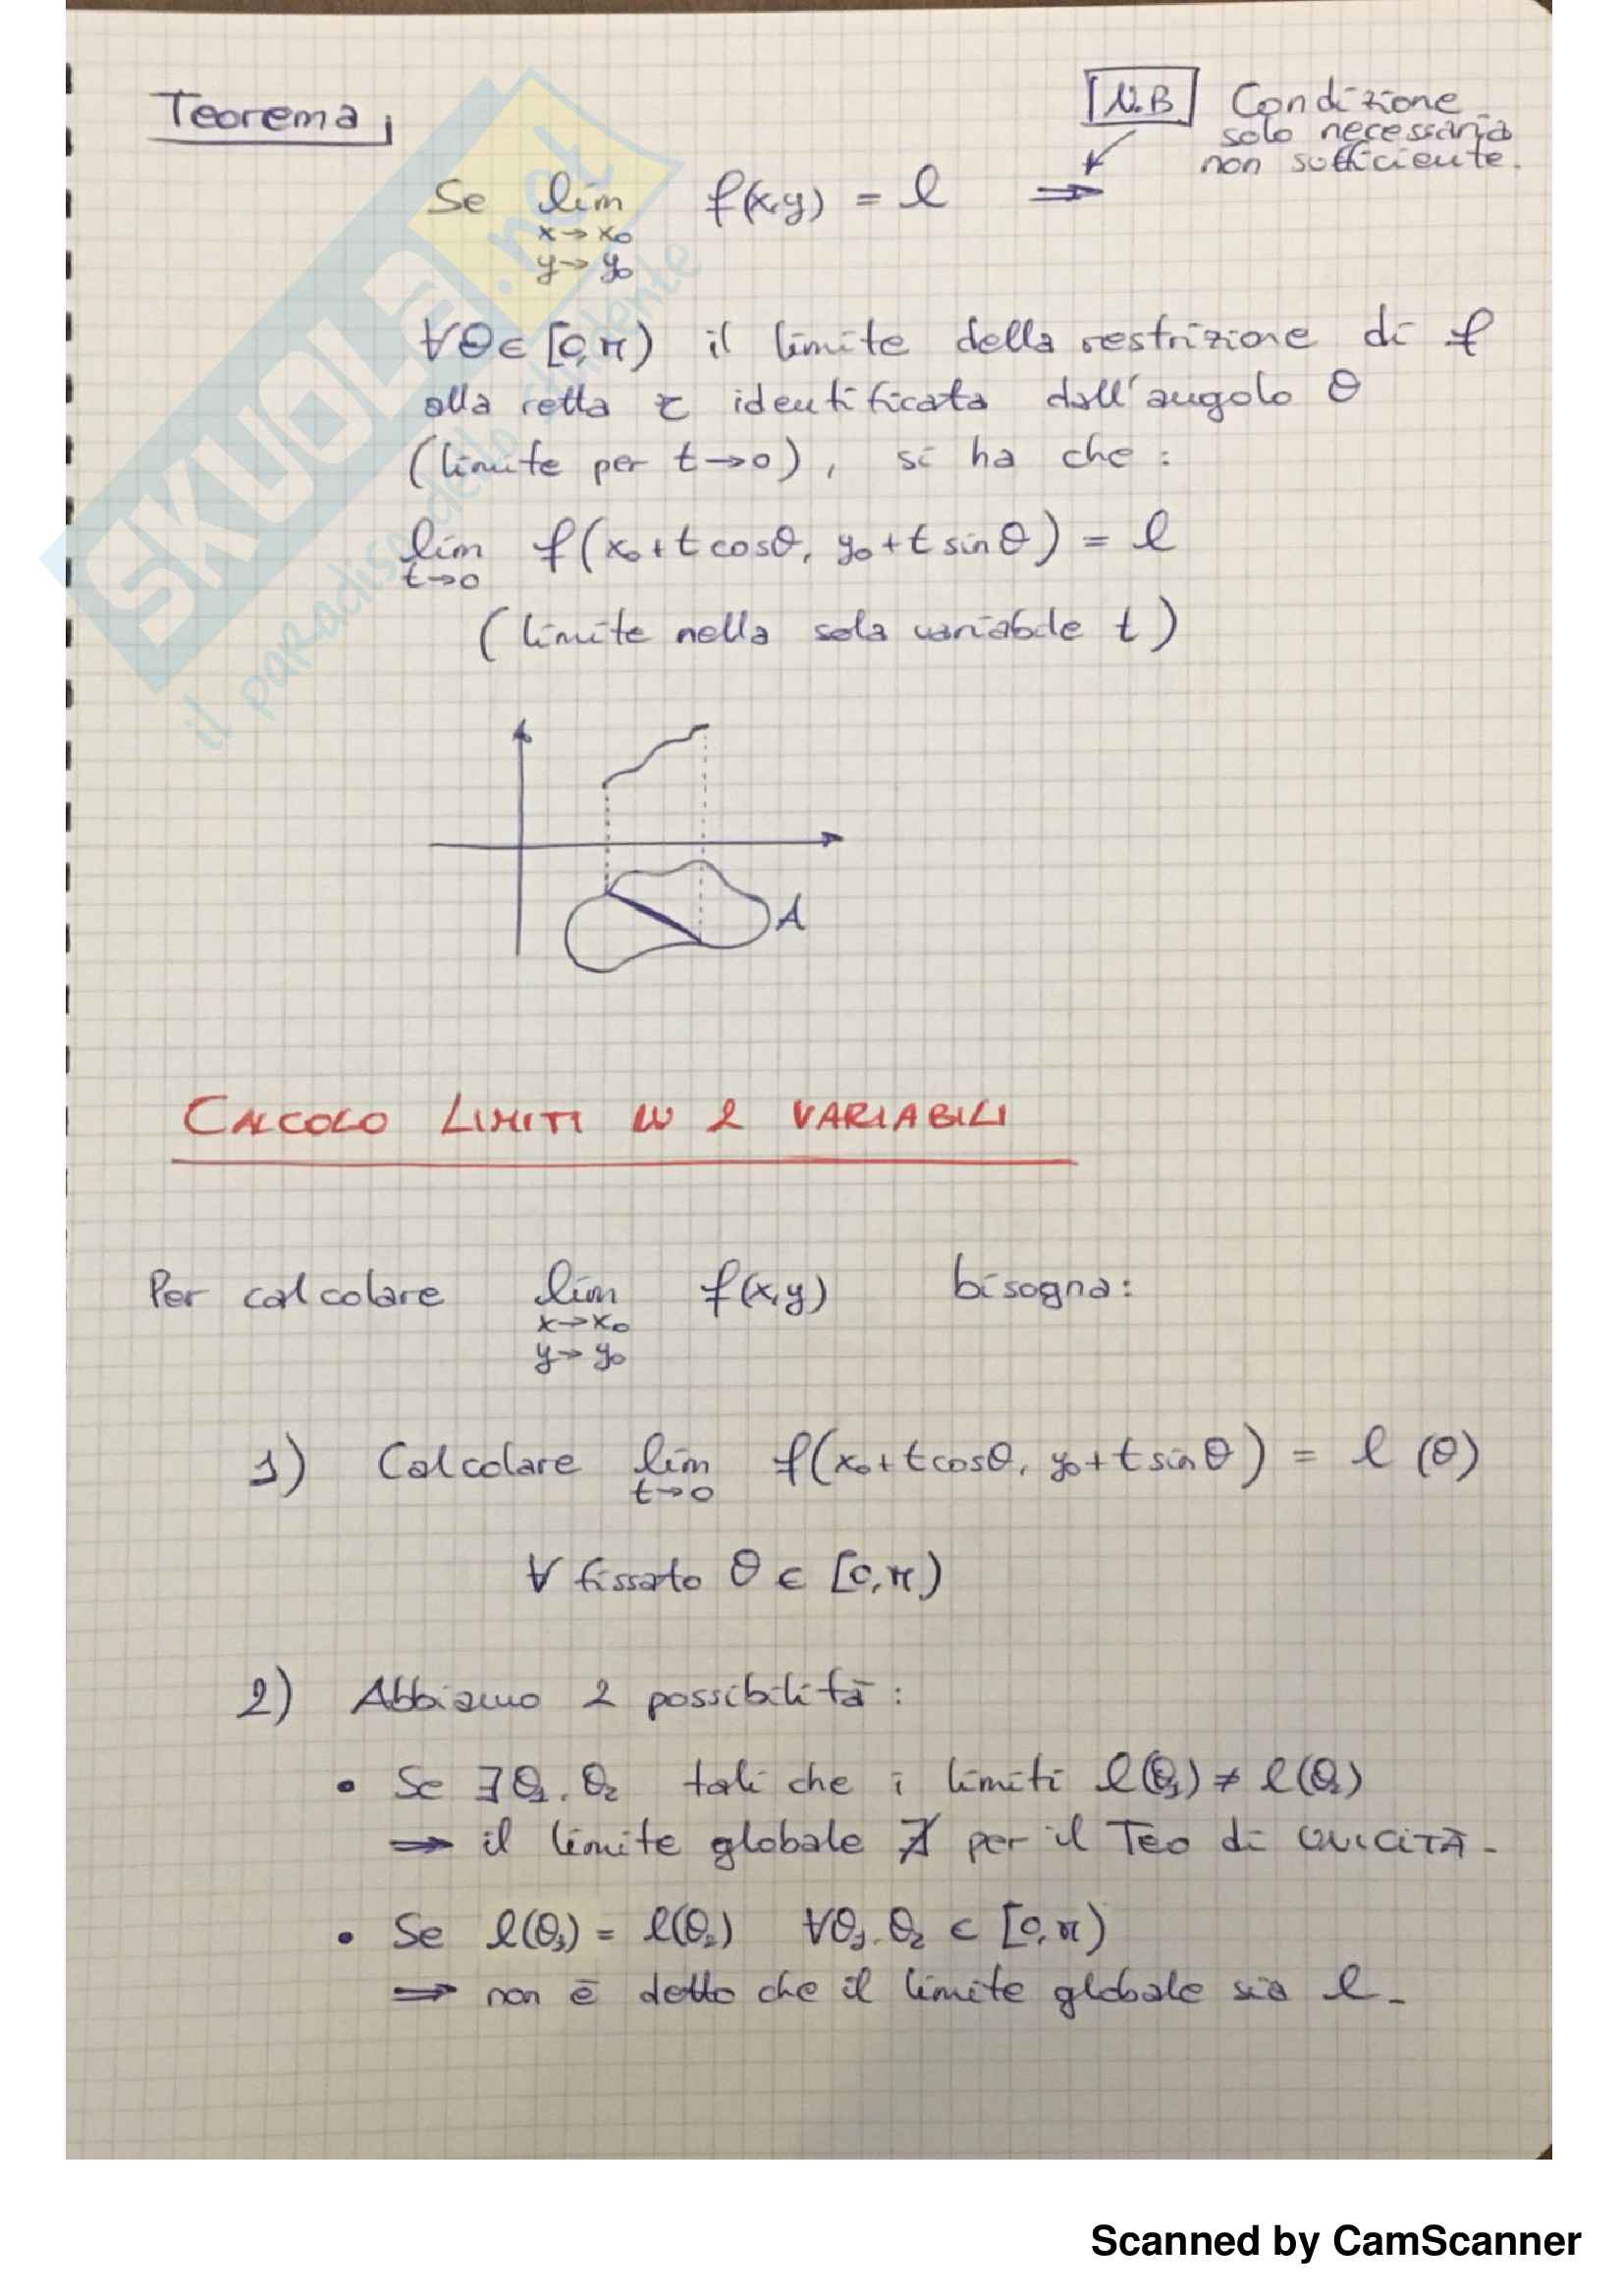 Teorema
N.B Condizione
solo necessaria
non sufficiente.
Se lim f(x,y) = l ⇒
x→x₀
y→y₀
∀θ∈[0,π) il limite della restrizione di f
alla retta r identificata dall'angolo θ
(limite per t→0), si ha che:
lim f(x₀+tcosθ, y₀+tsinθ) = l
t→0
(limite nella sola variabile t)
A
CALCOLO LIMITI IN 2 VARIABILI
Per calcolare lim f(x,y) bisogna:
x→x₀
y→y₀
1) Calcolare lim f(x₀+tcosθ, y₀+tsinθ) = l(θ)
t→0
∀ fissato θ ∈ [0,π)
2) Abbiamo 2 possibilità:
• Se ∃θ₁,θ₂ tali che i limiti l(θ₁) ≠ l(θ₂)
⇒ il limite globale ∄ per il Teo di UNICITÀ.
• Se l(θ₁) = l(θ₂) ∀θ₁,θ₂ ∈ [0,π)
⇒ non è detto che il limite globale sia l.
SKUOLA.net
il paradiso dello studente
Scanned by CamScanner